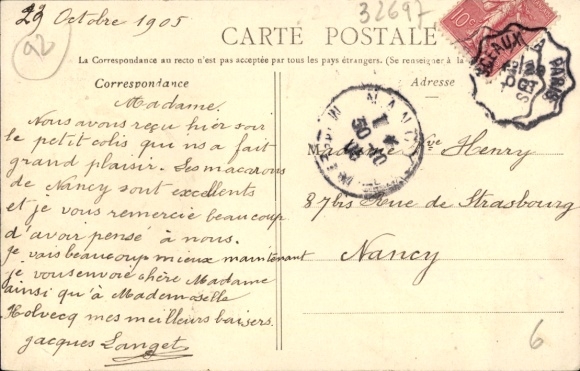 29 Octobre 1905
32697
92
10c
CARTE POSTALE
La Correspondance au recto n'est pas acceptée par tous les pays étrangers. (Se renseigner à la
Correspondance
Adresse
SCEAUX A PARIS
OCT
NANCY
30
Madame.
Nous avons reçu hier soir
le petit colis qui n/s a fait
grand plaisir. Les macarons
de Nancy sont excellents
et je vous remercie beaucoup
d'avoir pensé à nous.
je vais beaucoup mieux maintenant
je vous envoie chère Madame
ainsi qu'à Mademoselle
Holvecq mes meilleurs baisers.
jacques Langet
Madame Vve Henry
87bis Rue de Strasbourg
Nancy
6